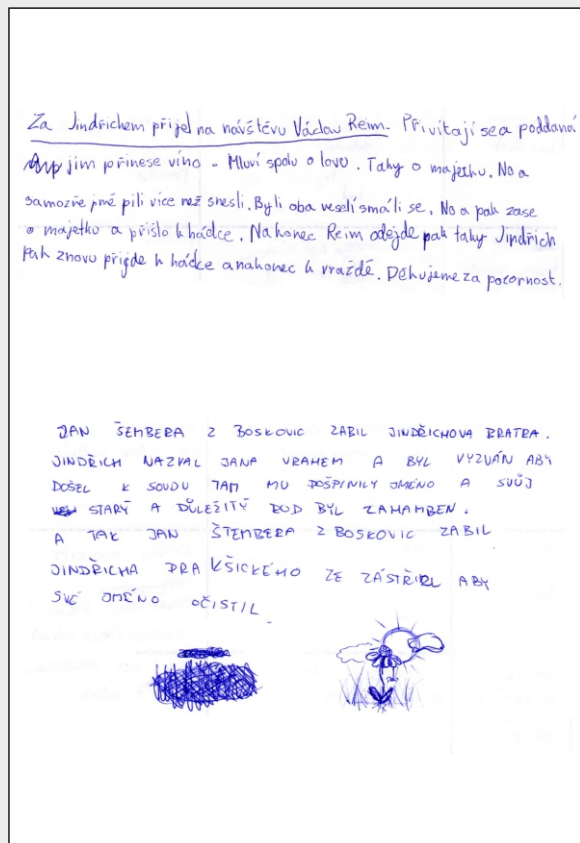 Za Jindřichem přijel na návštěvu Václav Reim. Přivítají se a poddaná
jim přinese víno. Mluví spolu o lovu. Taky o majetku. No a
samozřejmě pili více než snesli. Byli oba veselí smáli se. No a pak zase
o majetku a přišlo k hádce. Nakonec Reim odejde pak taky Jindřich
Pak znovu přijde k hádce a nakonec k vraždě. Děkujeme za pozornost.
JAN ŠEMBERA Z BOSKOVIC ZABIL JINDŘICHOVA BRATRA.
JINDŘICH NAZVAL JANA VRAHEM A BYL VYZVÁN ABY
DOŠEL K SOUDU TAM MU POŠPINILY JMÉNO A SVŮJ
STARÝ A DŮLEŽITÝ ROD BYL ZAHAMBEN.
A TAK JAN ŠTEMBERA Z BOSKOVIC ZABIL
JINDŘICHA PRAKŠICKÉHO ZE ZÁSTŘIZL ABY
SVÉ JMÉNO OČISTIL.